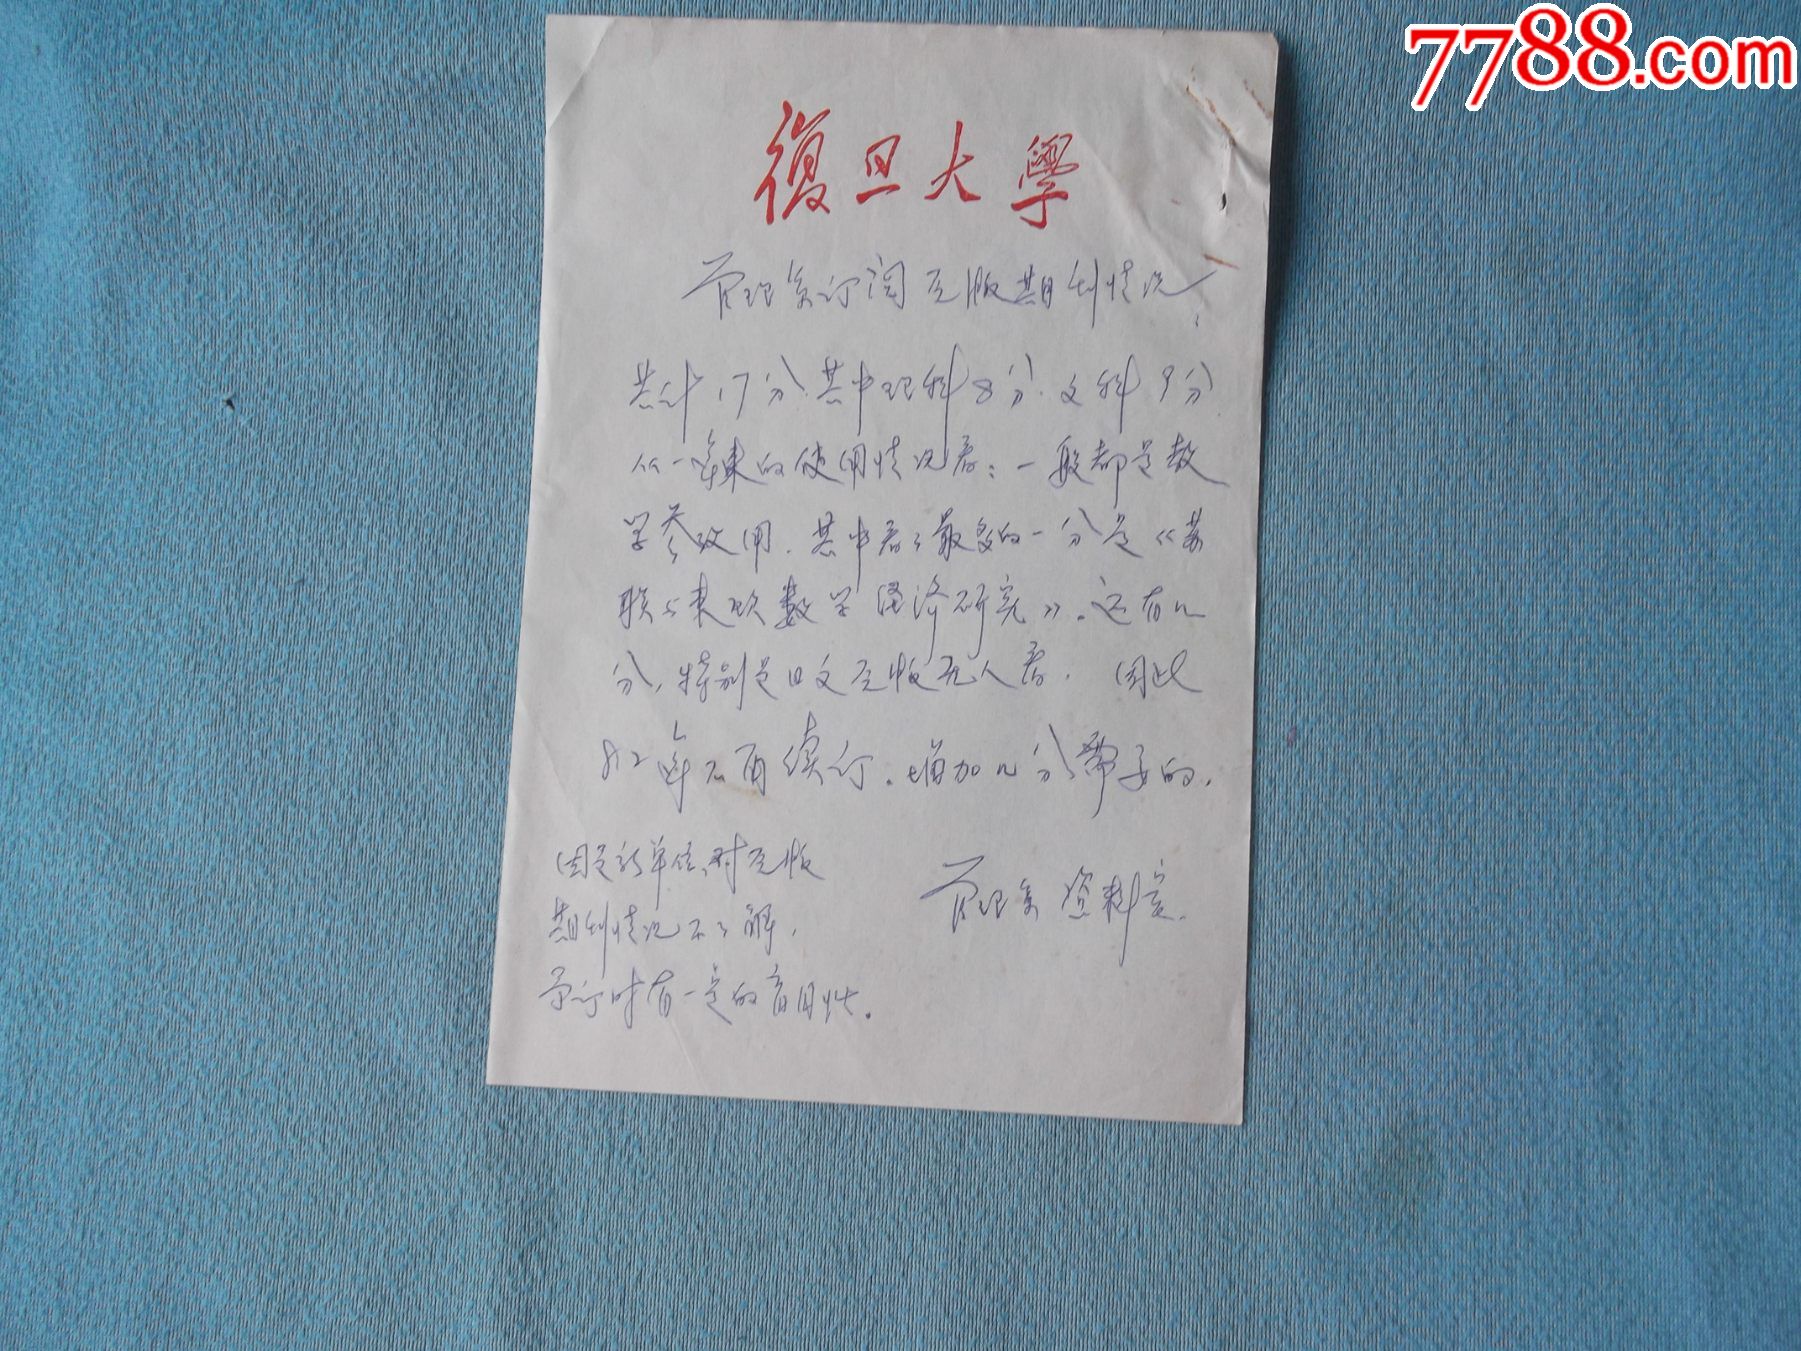 7788.com
復旦大學
管理系订阅原版期刊情况
共计17分.其中理科8分.文科9分
从一年来的使用情况看:一般都是教
学参攷用.其中看看最多的一分是《苏
联与东欧数学经济研究》。还有几
分,特别是日文原版无人看. 因此
82年不再续订。增加几分 的.
管理系资料室.
因是新单位,对原版
期刊情况不了解,
予订时有一定的盲目性。